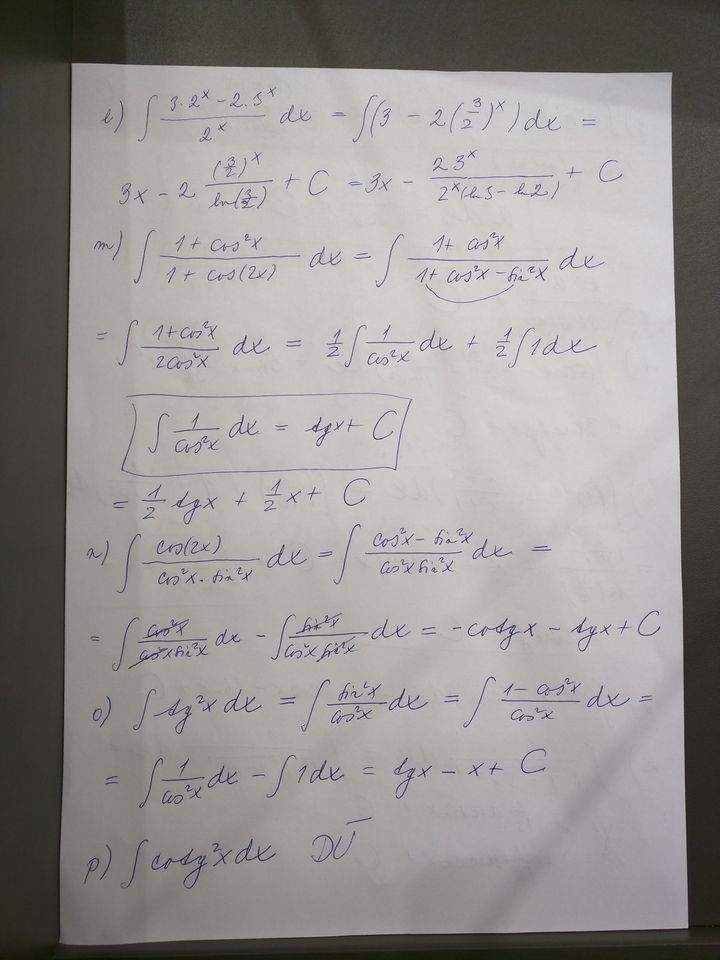 l) ∫ (3·2^x − 2·3^x)/2^x dx = ∫(3 − 2(3/2)^x) dx =
3x − 2 (3/2)^x/ln(3/2) + C = 3x − 23^x/(2^x(ln3 − ln2)) + C
m) ∫ (1 + cos²x)/(1 + cos(2x)) dx = ∫ (1 + cos²x)/(1 + cos²x − sin²x) dx
= ∫ (1+cos²x)/(2cos²x) dx = 1/2 ∫ 1/cos²x dx + 1/2 ∫ 1 dx
∫ 1/cos²x dx = tgx + C
= 1/2 tgx + 1/2 x + C
n) ∫ cos(2x)/(cos²x · sin²x) dx = ∫ (cos²x − sin²x)/(cos²x sin²x) dx =
= ∫ cos²x/(cos²x sin²x) dx − ∫ sin²x/(cos²x sin²x) dx = −cotgx − tgx + C
o) ∫ tg²x dx = ∫ sin²x/cos²x dx = ∫ (1 − cos²x)/cos²x dx =
= ∫ 1/cos²x dx − ∫ 1 dx = tgx − x + C
p) ∫ cotg²x dx DÚ